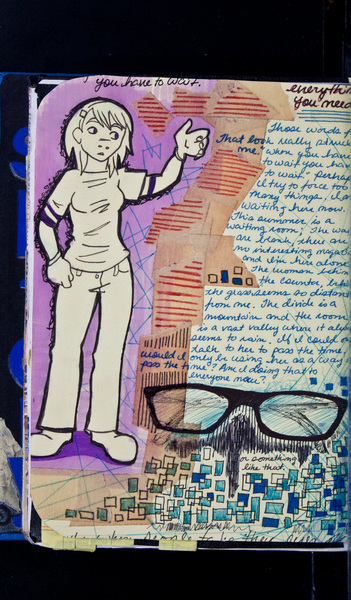 you have to wait.
everything
you need
Those words
That book really struck
me. When you have
to wait you have
to wait. Perhaps
I try to force too
many things, I am
waiting here now.
This summer is a
waiting room; the walls
are blank, there are
no interesting magazines
and I'm here alone.
The woman behind
the counter, behind
the glass seems so distant
from me. The divide is a
mountain and the room
is a vast valley where it always
seems to rain. If I could only
talk to her to pass the time,
would I only be using her as a way to
pass the time? Am I doing that to
everyone now?
or something
like that.